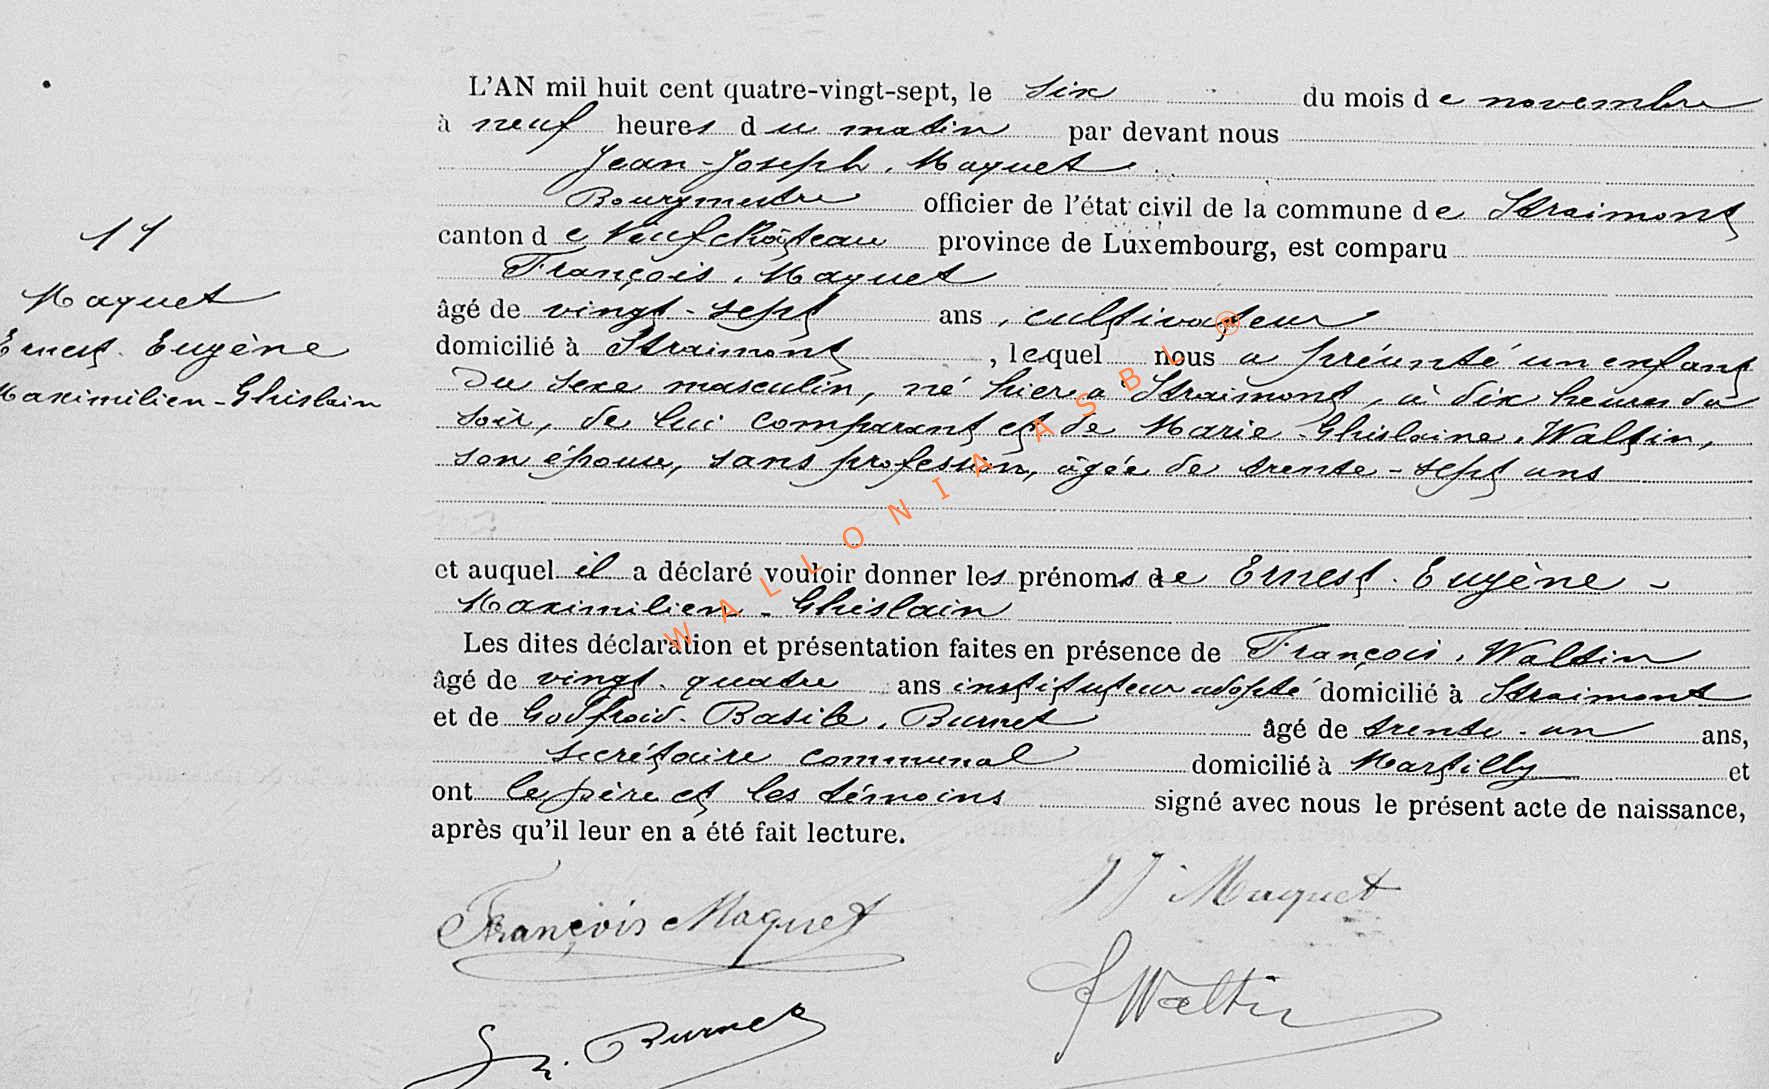 L'AN mil huit cent quatre-vingt-sept, le six du mois de novembre
à neuf heures du matin par devant nous
Jean-Joseph Maquet
Bourgmestre officier de l'état civil de la commune de Straimont
canton de Neufchâteau province de Luxembourg, est comparu
François Maquet
âgé de vingt-sept ans, cultivateur
domicilié à Straimont, lequel nous a présenté un enfant
du sexe masculin, né hier à Straimont, à dix heures du
soir, de lui comparant et de Marie-Ghislaine Waltin,
son épouse, sans profession, âgée de trente-sept ans
et auquel il a déclaré vouloir donner les prénoms de Ernest-Eugène-
Maximilien-Ghislain
Les dites déclaration et présentation faites en présence de François Waltin
âgé de vingt-quatre ans instituteur adopté domicilié à Straimont
et de Godfroid-Basile Burnet âgé de trente-un ans,
secrétaire communal domicilié à Martilly et
ont le père et les témoins signé avec nous le présent acte de naissance,
après qu'il leur en a été fait lecture.
Maquet
Ernest-Eugène
Maximilien-Ghislain
François Maquet
JJ Maquet
F Waltin
Burnet
WALLONIA ASBL ®